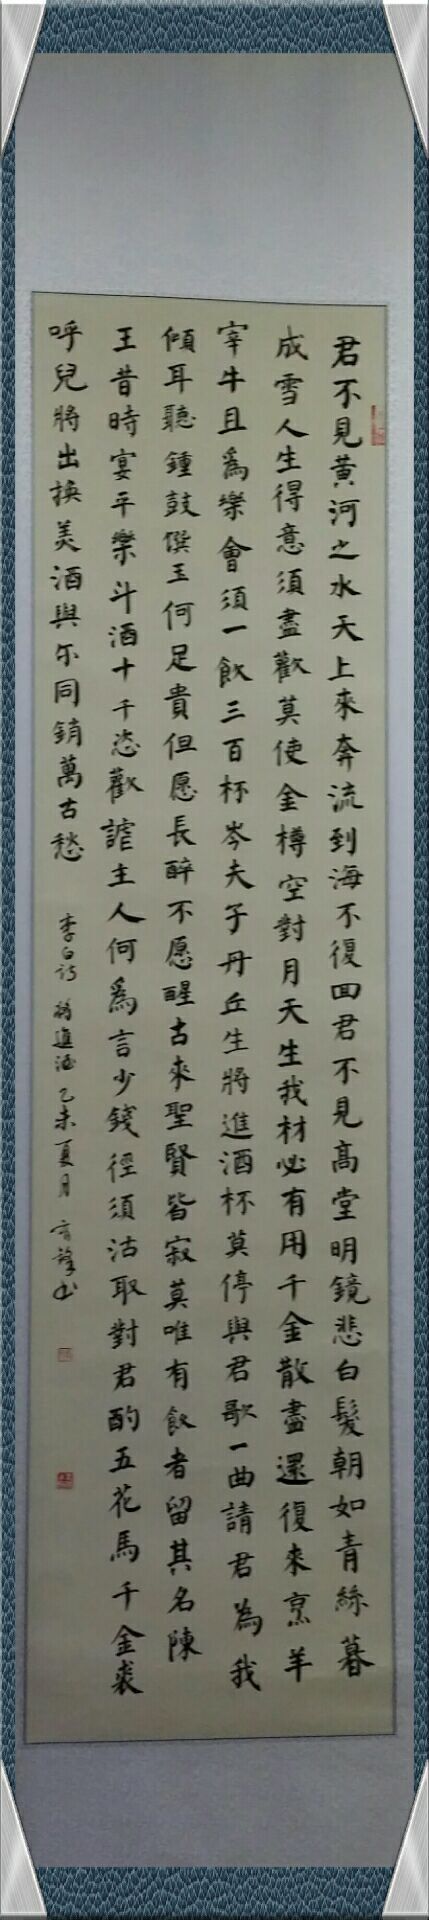 君不見黃河之水天上來奔流到海不復回君不見高堂明鏡悲白髮朝如青絲暮
成雪人生得意須盡歡莫使金樽空對月天生我材必有用千金散盡還復來烹羊
宰牛且爲樂會須一飲三百杯岑夫子丹丘生將進酒杯莫停與君歌一曲請君為我
傾耳聽鍾鼓馔玉何足貴但愿長醉不愿醒古來聖賢皆寂莫唯有飲者留其名陳
王昔時宴平樂斗酒十千恣歡謔主人何爲言少錢徑須沽取對君酌五花馬千金裘
呼兒將出換美酒與尔同銷萬古愁
李白诗 將進酒 乙未夏月 书